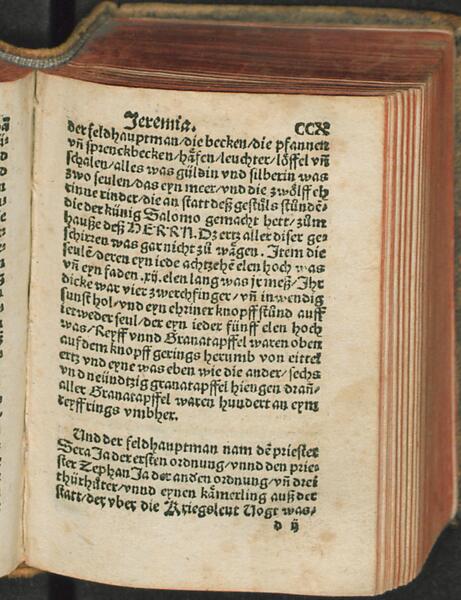 Jeremia. CCX
der feldhauptman/die becken/die pfannen
vñ sprenckbecken/häfen/leuchter/löffel vñ
schalen/alles was güldin vnd silberin was
zwo seulen/das eyn meer/vnd die zwölff eh
rinne rinder/die an statt deß gestůls stůndē/
die der künig Salomo gemacht hett/zům
hauße deß HERRN. Dz ertz aller diser ge-
schirren was gar nicht zů wägen. Item die
seulē/deren eyn iede achtzehē elen hoch was
vñ eyn faden .xij. elen lang was jr meß/Ihr
dicke war vier zwerchfinger/vñ inwendig
sunst hol/vnd eyn ehriner knopff stůnd auff
ietweder seul/der eyn ieder fünff elen hoch
was/Reyff vnnd Granatapffel waren oben
auff dem knopff gerings herumb von eittel
ertz vnd eyne was eben wie die ander/sechs
vnd neündtzig granatapffel hiengen drañ/
aller Granatapffel waren hundert an eym
reyff rings vmbher.
Und der feldhauptman nam dē priester
SeraJa der ersten ordnung/vnnd den prie-
ster ZephanJa der andern ordnung/vñ drei
thürhüter/vnnd eynen kämerling auß der
statt/der vber die Kriegsleut Vogt was/
d ij